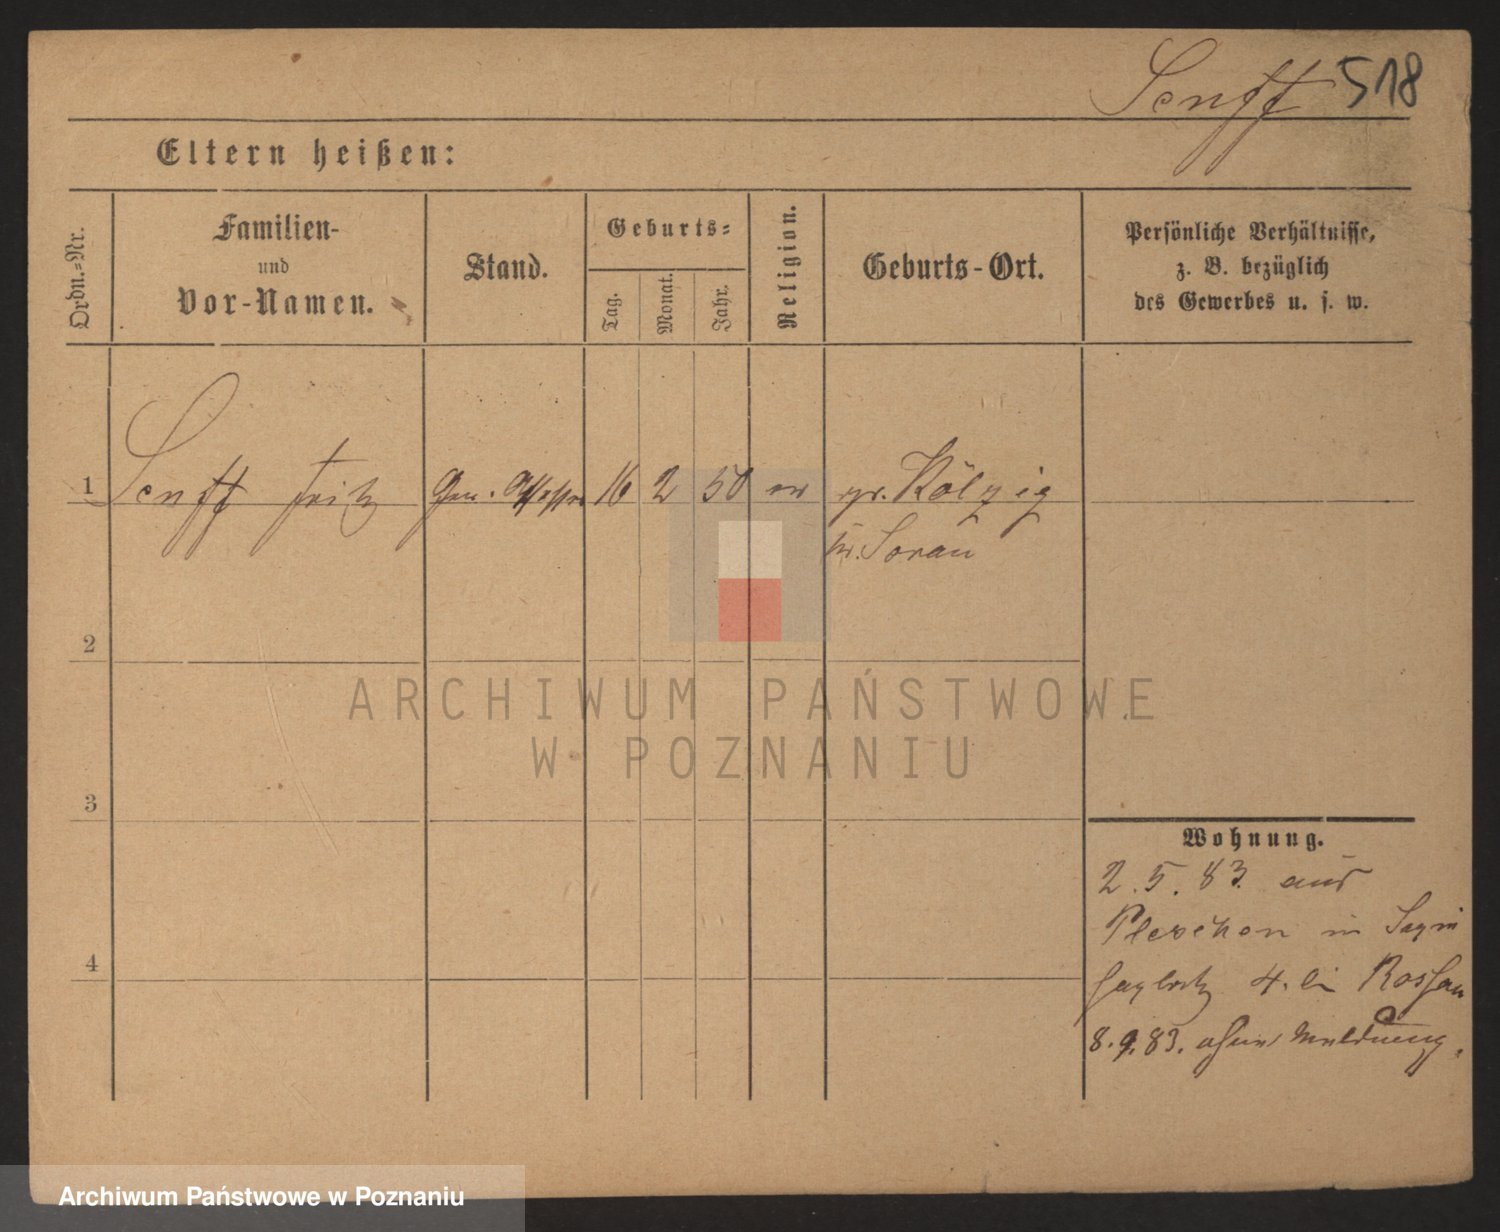 Senff 518
Eltern heißen:
Ordn.-Nr.
Familien-
und
Vor-Namen.
Stand.
Geburts-
Tag.
Monat.
Jahr.
Religion.
Geburts-Ort.
Persönliche Verhältnisse,
z. B. bezüglich
des Gewerbes u. s. w.
1 Senff Fritz Ger. Assessor 16 2 50 ev gr. Kölzig
kr. Sorau
2
3
4
Wohnung.
2.5.83. aus
Pleschen in
4. bei
8.9.83. ohne Meldung.
ARCHIWUM PAŃSTWOWE
W POZNANIU
Archiwum Państwowe w Poznaniu